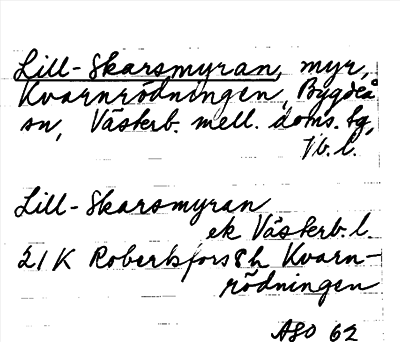 Lill-Skarsmyran, myr,
Kvarnrödningen, Bygdeå
sn, Västerb. mell. doms. tg,
Vb. l.
Lill-Skarsmyran
ek Västerb. l.
21K Robertsfors 8h Kvarn-
rödningen
ASO 62